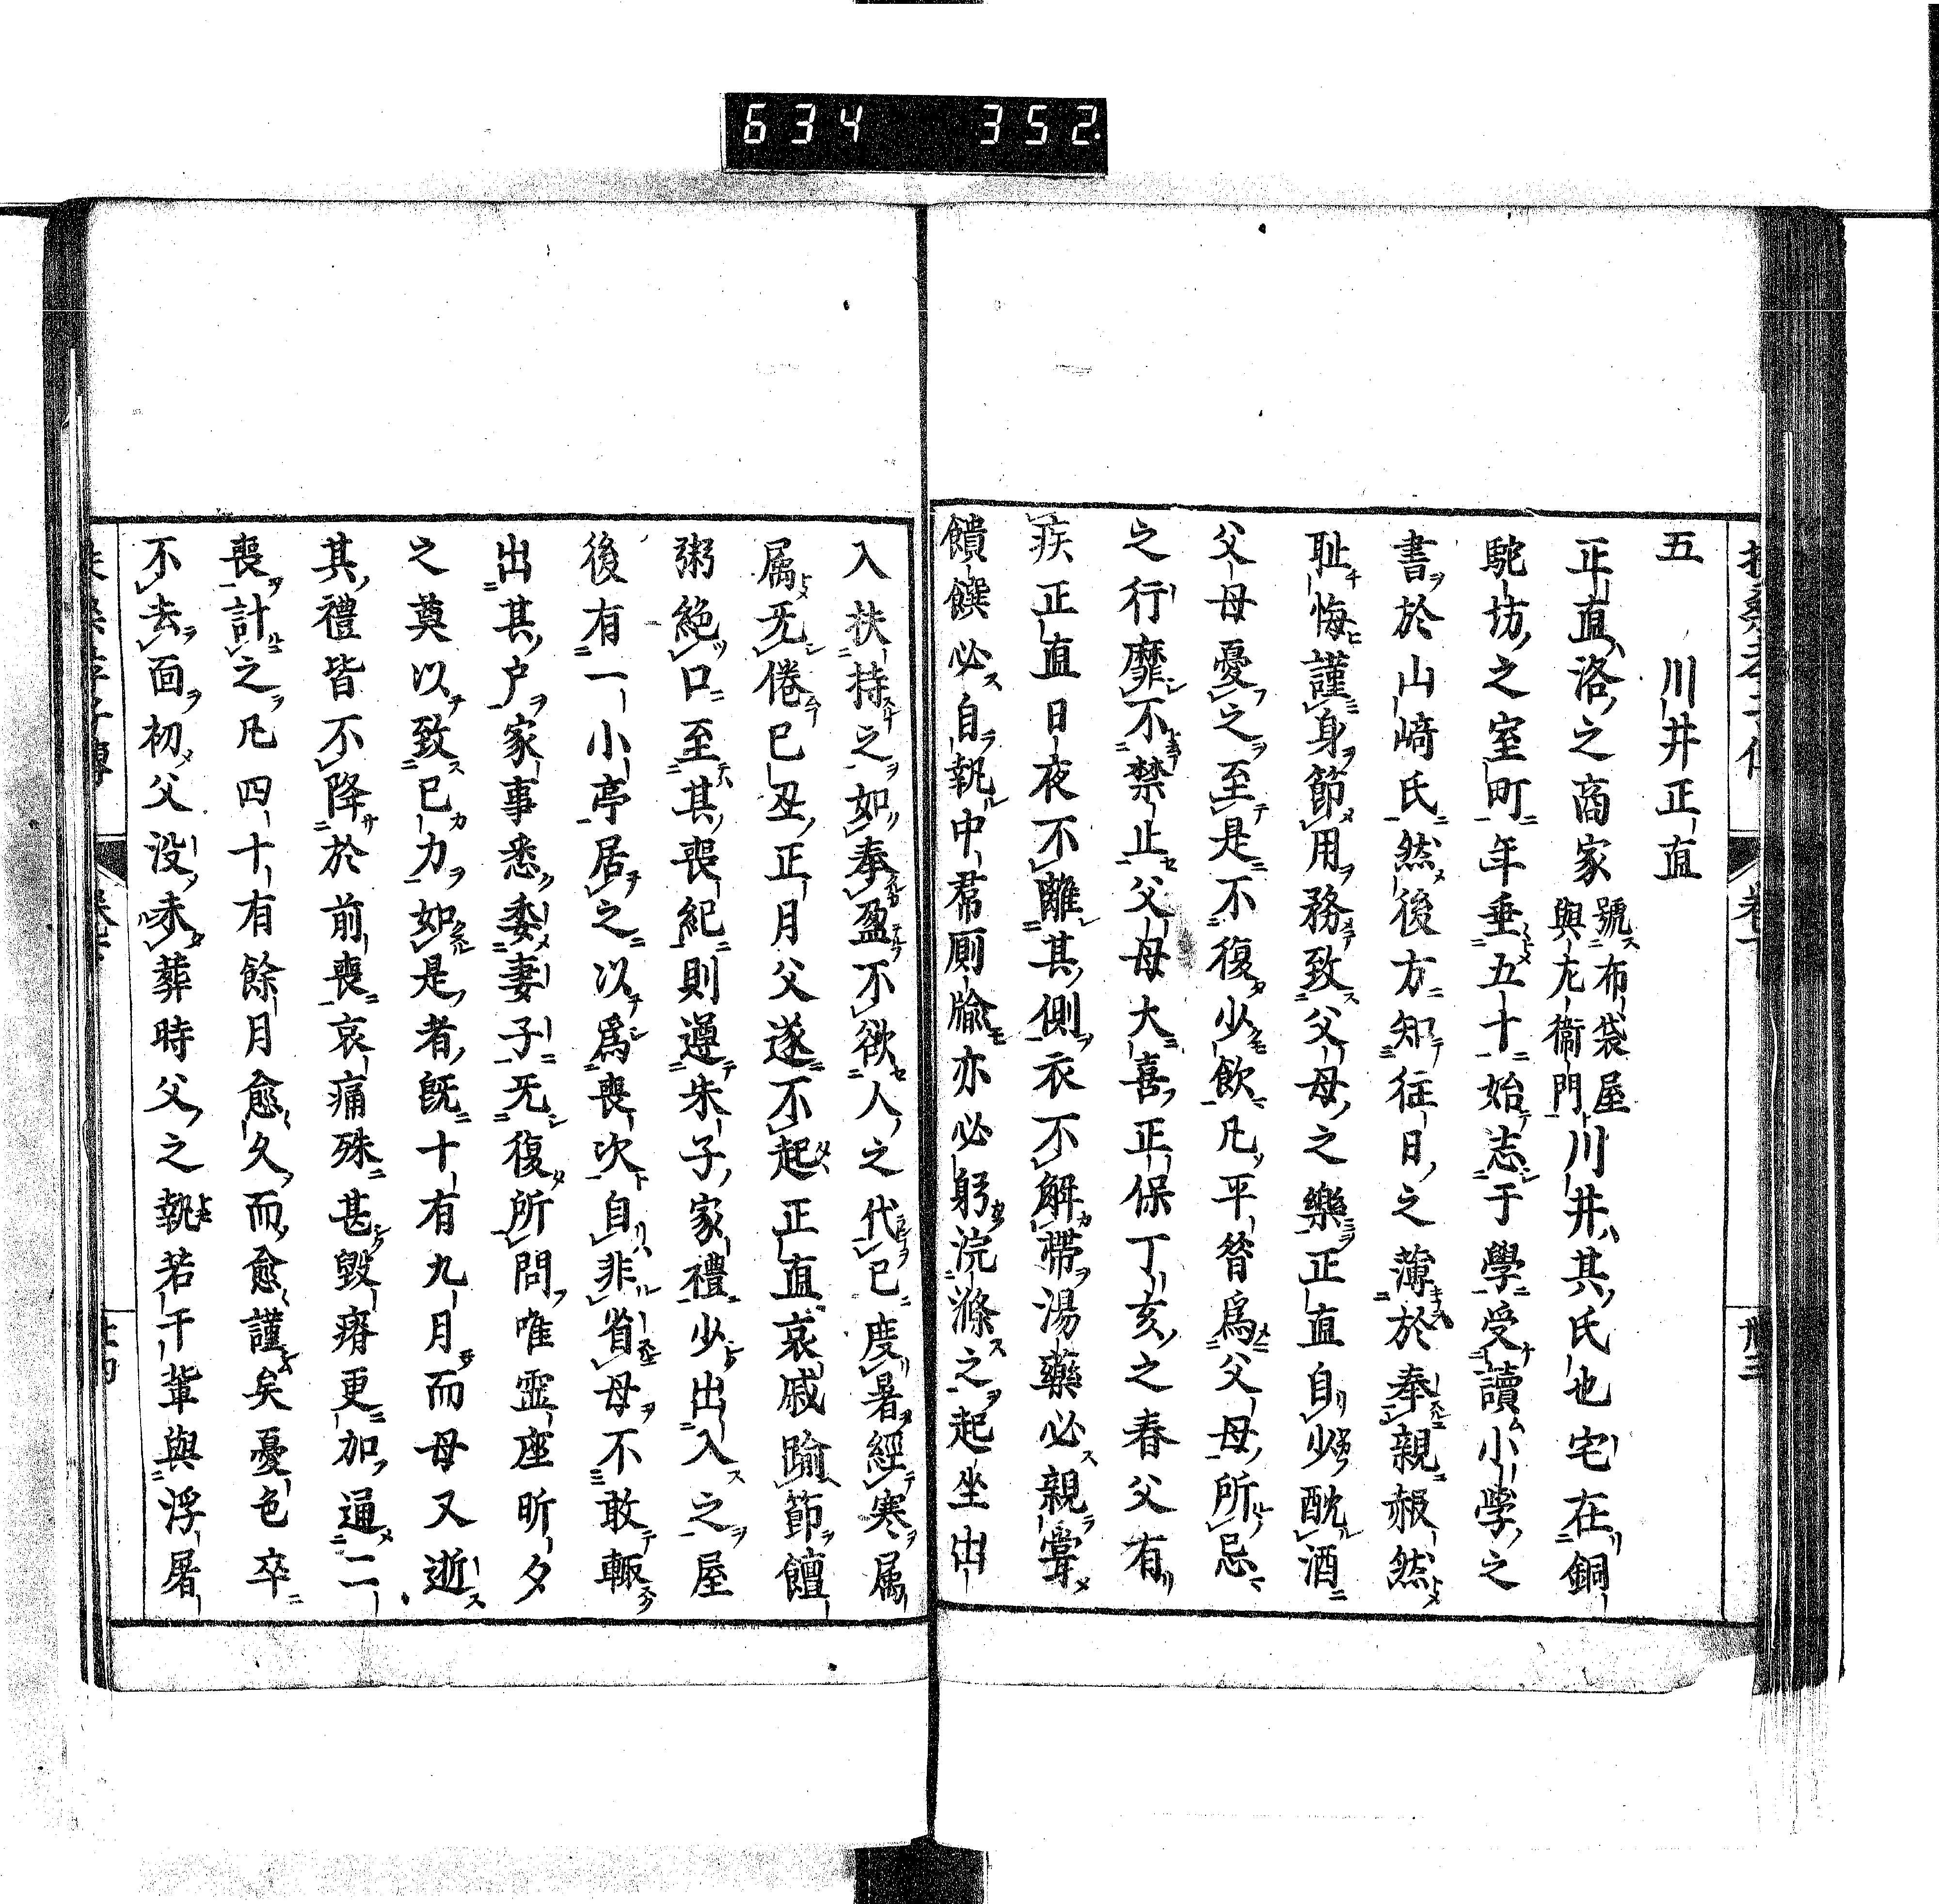 634 352
五 川井正直
正直洛之商家號布袋屋與左衞門川井其氏也宅在銅
駝坊之室町年垂五十始志于學受讀小學之
書於山﨑氏然後方知往日之薄於奉親赧然
耻悔謹身節用務致父母之樂正直自少酖酒
父母憂之至是不復少飲凡平昝爲父母所忌
之行靡不禁止父母大喜正保丁亥之春父有
疾正直日夜不離其側衣不解帶湯藥必親嘗
饋饌必自執中帬厠牏亦必躬浣滌之起坐出
入扶持之如奉盈不欲人之代已度暑經寒屬
屬无倦已丑正月父遂不起正直哀戚踰節饘
粥絶口至其喪紀則遵朱子家禮少出入之屋
後有一小亭居之以爲喪次自非省母不敢輙
出其户家事悉委妻子无復所問唯霊座昕夕
之奠以致已力如是者旣十有九月而母又逝
其禮皆不降於前喪哀痛殊甚毀瘠更加通二
喪計之凡四十有餘月愈久而愈謹矣憂色卒
不去面初父没未葬時父之執若干輩與浮屠